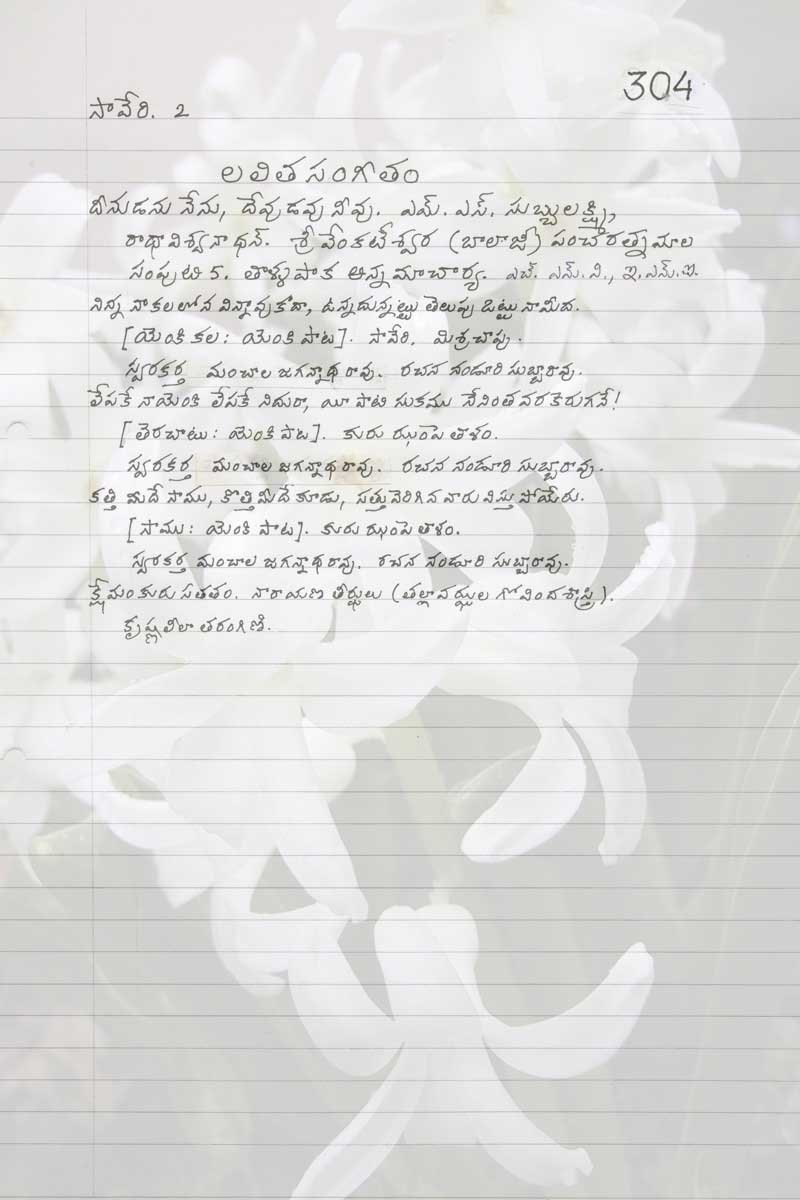 304
సావేరి. 2
లలిత సంగీతం
దీనుడను నేను, దేవుడవు నీవు. ఎమ్. ఎస్. సుబ్బులక్ష్మి,
రాధా విశ్వనాథన్. శ్రీ వేంకటేశ్వర (బాలాజీ) పంచరత్నమాల
సంపుటి 5. తాళ్ళపాక అన్నమాచార్య. ఎచ్. ఎమ్. వి., ఇ. ఎమ్. ఐ.
నిన్న నాకలలోన విన్నావుకదా, ఉన్నదున్నట్టు తెలుపు ఒట్టు నామీద.
[యెంకి కల: యెంకి పాట]. సావేరి. మిశ్రచాపు.
స్వరకర్త మంచాల జగన్నాథ రావు. రచన నండూరి సుబ్బారావు.
లేపకే నాయెంకి లేపకే నిదురా, యీ పాటి సుకము నేనింతవరకెరుగనే!
[తెరచాటు: యెంకి పాట]. కురు ఝంపె తాళం.
స్వరకర్త మంచాల జగన్నాథ రావు. రచన నండూరి సుబ్బారావు.
కత్తి మీదే సాము, కొత్తి మీదే కూడు, సత్తువెరిగిన వారు విస్తుపోయేరు.
[సాము: యెంకి పాట]. కురు ఝంపె తాళం.
స్వరకర్త మంచాల జగన్నాథ రావు. రచన నండూరి సుబ్బారావు.
క్షేమం కురు సతతం. నారాయణ తీర్థులు (తల్లావఝ్ఝుల గోవింద శాస్త్రి).
కృష్ణలీలా తరంగిణి.